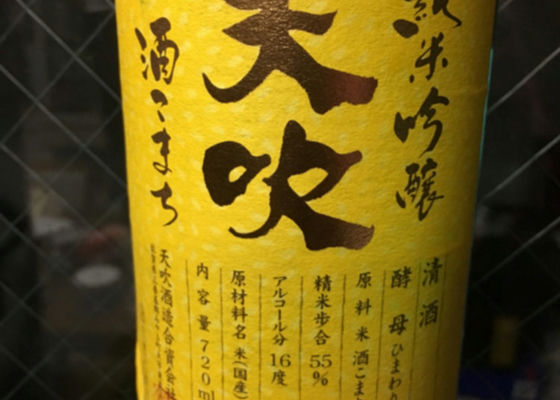 純米吟醸
天吹
酒こまち
清酒
酵母 ひまわり
原料米 酒こま
精米歩合 55%
アルコール分 16度
原材料名 米(国産)
内容量 720ml
天吹酒造合資会社